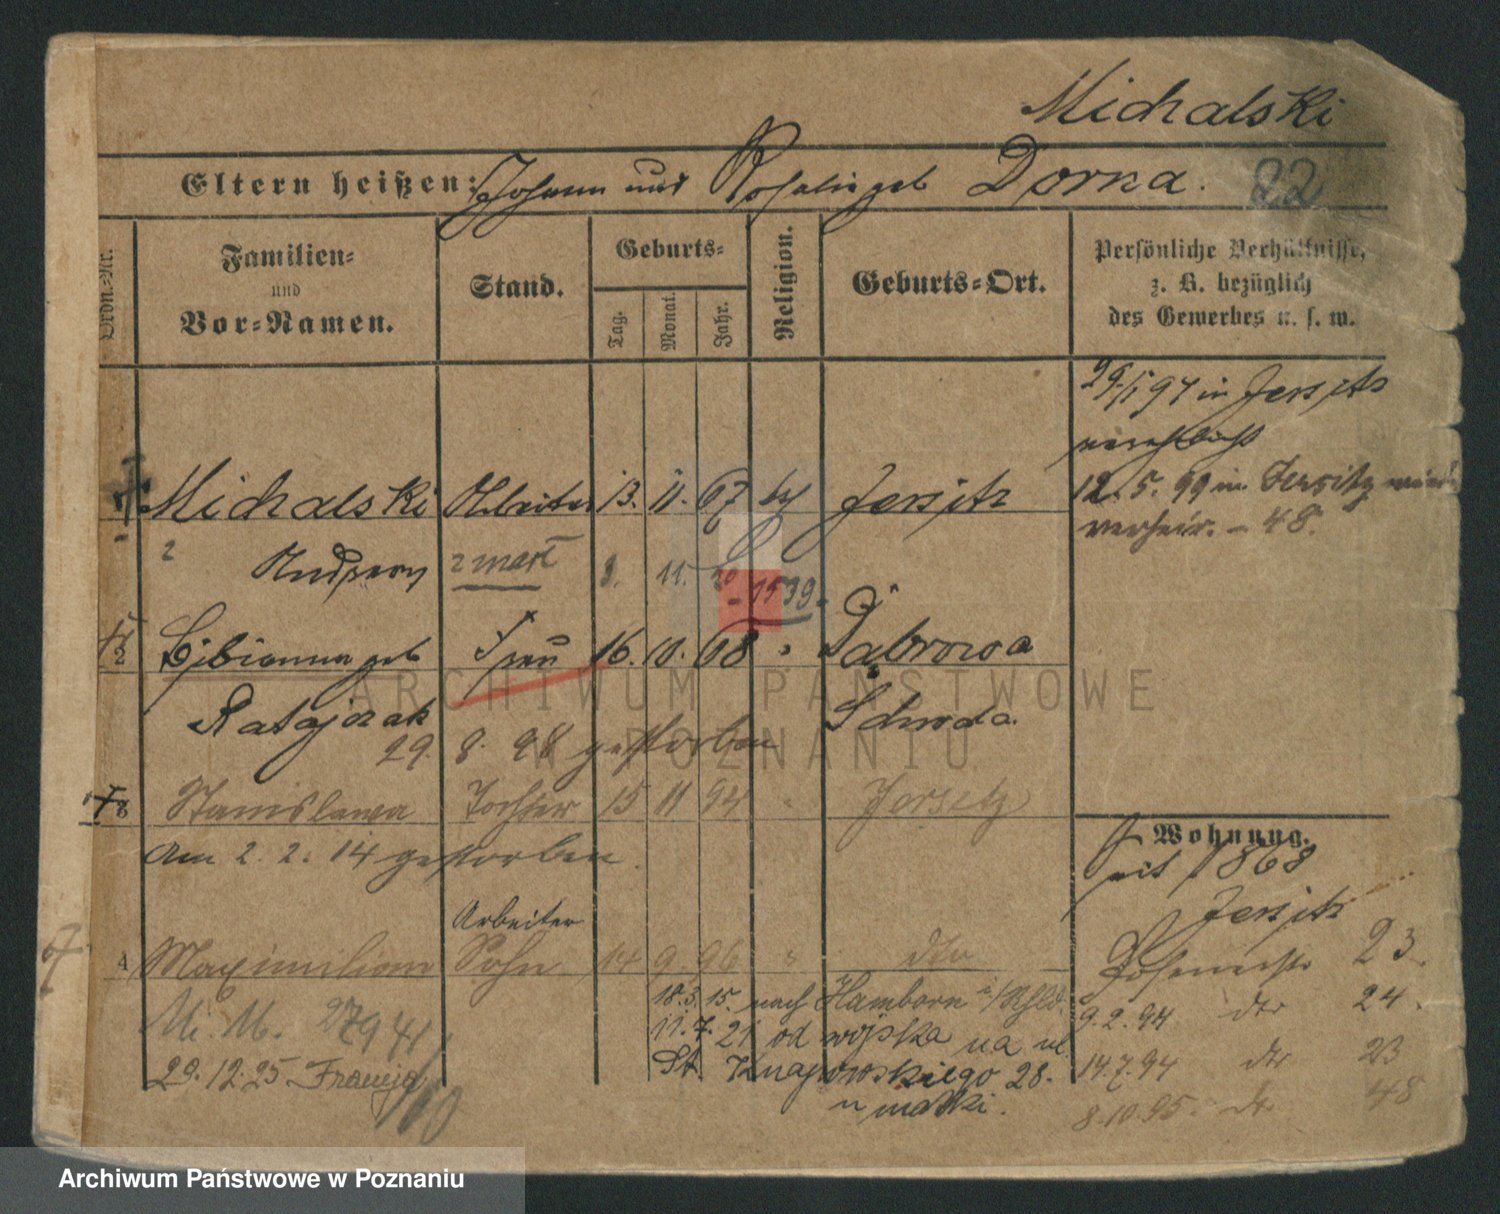 Michalski
Eltern heißen: Johann und Rosalie geb Dorna. 22
Ordn.-Nr.
Familien-
und
Vor-Namen.
Stand.
Geburts-
Tag.
Monat.
Jahr.
Religion.
Geburts-Ort.
Persönliche Verhältnisse,
z. B. bezüglich
des Gewerbes u. s. w.
in Jersitz
12. 5. 99 in Jersitz
verheir. - 48.
Michalski Arbeiter 13. 11. 67 Jersitz
2 zmarł 11.
- 1539.
2 Bibianna geb Frau 16. 10. 68 " Dąbrowa
Ratajczak Schroda
29. 8. 98 gestorben
3 Stanislawa Tochter 15 11 94 " Jersitz
Am 2. 2. 14 gestorben.
Arbeiter
4 Maximilian Sohn 14 9 96 " dto
18. 3. 15. nach Hamborn a/Rhld.
M. M. 27941
11. 7. 21 od wojska na ul.
29. 12. 25 Francja St. Knapowskiego 28.
u matki.
Wohnung.
seit 1868
Jersitz
23.
9. 2. 94 dto 24.
14. 7. 94 dto 23
8. 10. 95. dto 48
ARCHIWUM PAŃSTWOWE
W POZNANIU
Archiwum Państwowe w Poznaniu